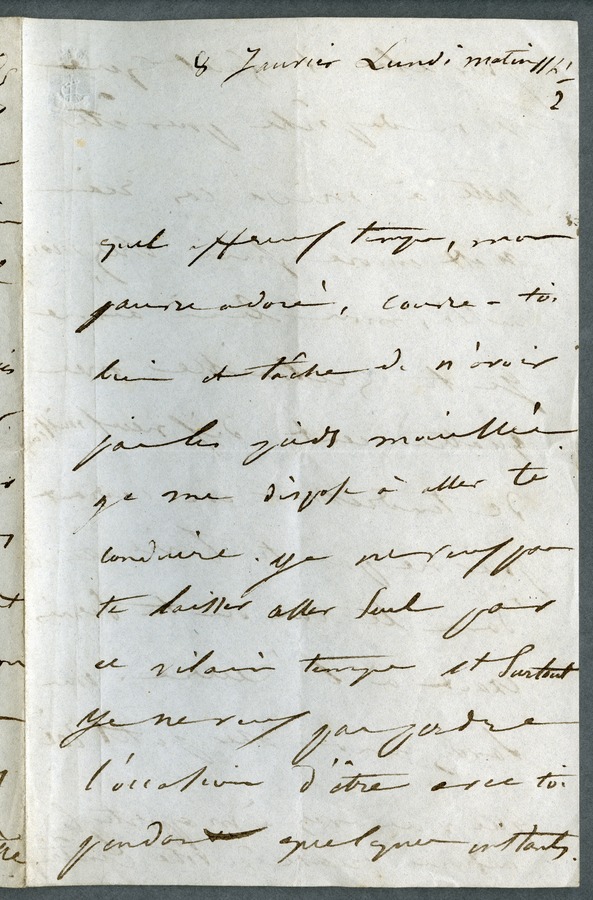 8 Janvier Lundi matin 11h 1/2
quel affreux temps, mon
pauvre adoré, couvre-toi
bien et tâche de n'avoir
pas les pieds mouillés.
Je me dispose à aller te
conduire. Je ne veux pas
te laisser aller seul par
ce vilain temps et surtout
je ne veux pas perdre
l'occasion d'être avec toi
pendant quelques instants.